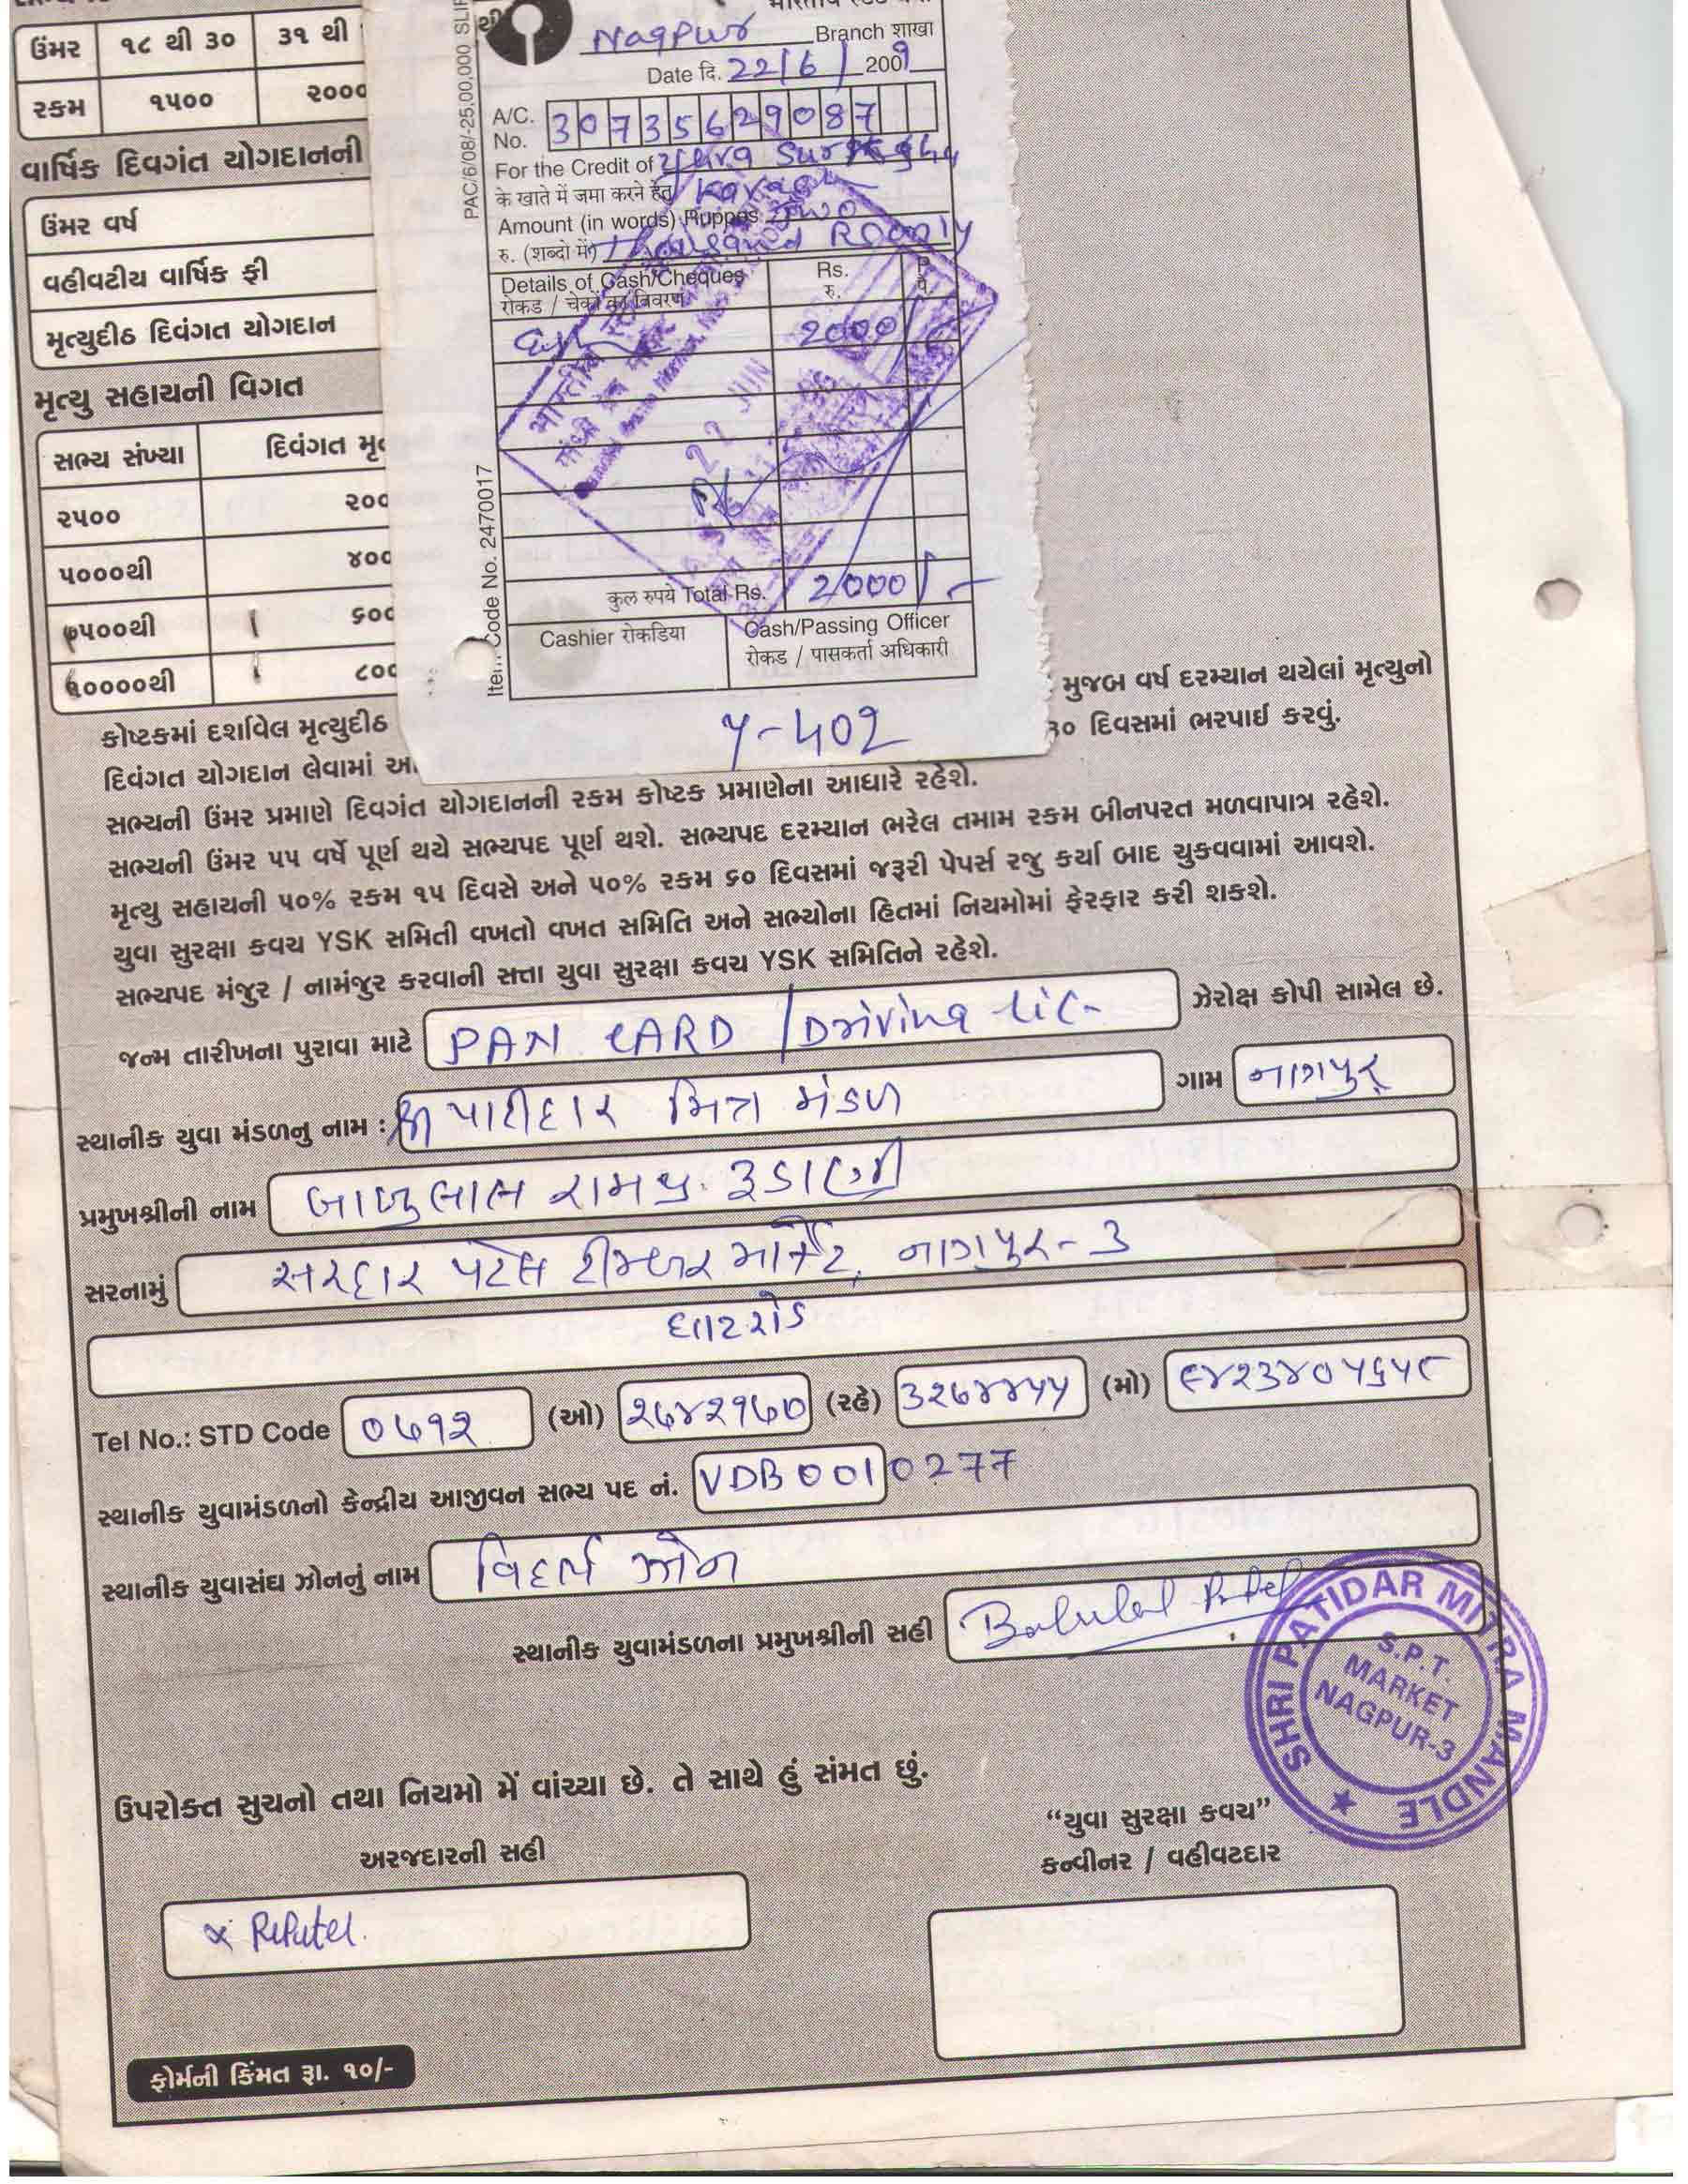 ઉંમર ૧૮ થી ૩૦ ૩૧ થી
રકમ ૧૫૦૦ ૨૦૦૦
વાર્ષિક દિવગંત યોગદાનની
ઉંમર વર્ષ
વહીવટીય વાર્ષિક ફી
મૃત્યુદીઠ દિવંગત યોગદાન
મૃત્યુ સહાયની વિગત
સભ્ય સંખ્યા દિવંગત
૨૫૦૦ ૨૦૦
૫૦૦૦થી ૪૦૦
૭૫૦૦થી ૬૦૦
૧૦૦૦૦થી ૮૦૦
PAC/6/08/-25.00,000 SLIP
Item Code No. 2470017
Nagpur Branch शाखा
Date दि. 22/6/2009
A/C. No. 30735629087
For the Credit of Yuva
के खाते में जमा करने हेतु Kavach
Amount (in words) Ruppes Two
रु. (शब्दो में) Thousand Rs only
Details of Cash/Cheques Rs. P.
रोकड / चेकों का विवरण रु. पै.
Cash 2000/-
22 JUN
कुल रुपये Total Rs. 2000/-
Cashier रोकडिया Cash/Passing Officer
रोकड / पासकर्ता अधिकारी
Y-402
મુજબ વર્ષ દરમ્યાન થયેલાં મૃત્યુનો
કોષ્ટકમાં દર્શાવેલ મૃત્યુદીઠ ૩૦ દિવસમાં ભરપાઈ કરવું.
દિવંગત યોગદાન લેવામાં
સભ્યની ઉંમર પ્રમાણે દિવગંત યોગદાનની રકમ કોષ્ટક પ્રમાણેના આધારે રહેશે.
સભ્યની ઉંમર ૫૫ વર્ષે પૂર્ણ થયે સભ્યપદ પૂર્ણ થશે. સભ્યપદ દરમ્યાન ભરેલ તમામ રકમ બીનપરત મળવાપાત્ર રહેશે.
મૃત્યુ સહાયની ૫૦% રકમ ૧૫ દિવસે અને ૫૦% રકમ ૬૦ દિવસમાં જરૂરી પેપર્સ રજુ કર્યા બાદ ચુકવવામાં આવશે.
યુવા સુરક્ષા કવચ YSK સમિતી વખતો વખત સમિતિ અને સભ્યોના હિતમાં નિયમોમાં ફેરફાર કરી શકશે.
સભ્યપદ મંજુર / નામંજુર કરવાની સત્તા યુવા સુરક્ષા કવચ YSK સમિતિને રહેશે.
જન્મ તારીખના પુરાવા માટે PAN CARD / Driving Lic- ઝેરોક્ષ કોપી સામેલ છે.
સ્થાનીક યુવા મંડળનુ નામ : શ્રી પાટીદાર મિત્ર મંડળ ગામ નાગપુર
પ્રમુખશ્રીની નામ બાબુલાલ રામજી રૂડાણી
સરનામું સરદાર પટેલ ટીમ્બર માર્કેટ, નાગપુર-૩
ઘાટરોડ
Tel No.: STD Code ૦૭૧૨ (ઓ) ૨૭૪૨૧૭૦ (રહે) ૩૨૭૪૪૫૫ (મો) ૯૪૨૩૪૦૫૬૫૯
સ્થાનીક યુવામંડળનો કેન્દ્રીય આજીવન સભ્ય પદ નં. VDB0010277
સ્થાનીક યુવાસંઘ ઝોનનું નામ વિદર્ભ ઝોન
સ્થાનીક યુવામંડળના પ્રમુખશ્રીની સહી Babulal Patel
SHRI PATIDAR MITRA MANDLE
S.P.T.
MARKET
NAGPUR-3
ઉપરોક્ત સુચનો તથા નિયમો મેં વાંચ્યા છે. તે સાથે હું સંમત છું.
અરજદારની સહી
"યુવા સુરક્ષા કવચ"
કન્વીનર / વહીવટદાર
x RPatel.
ફોર્મની કિંમત રૂા. ૧૦/-